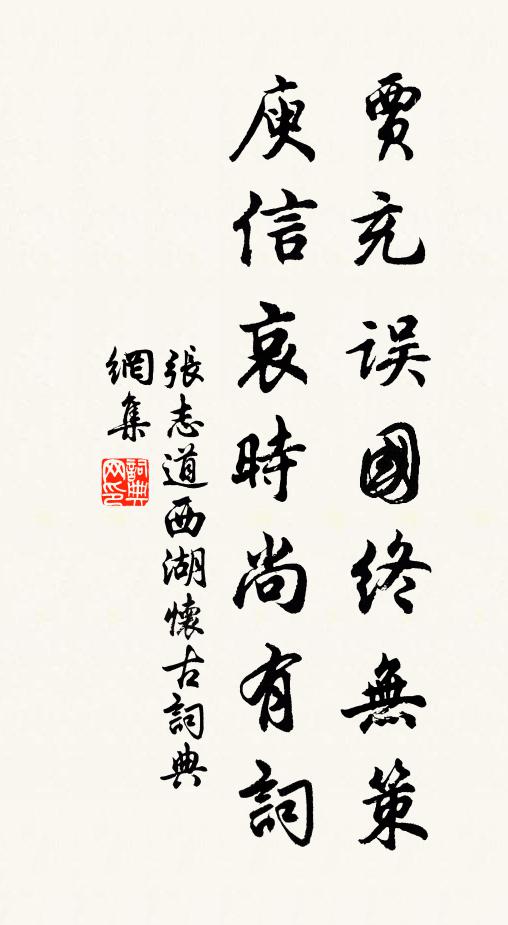 賈充误國終無策
庾信哀時尚有詞
張志道西湖懷古詞典
網集
詞典網印